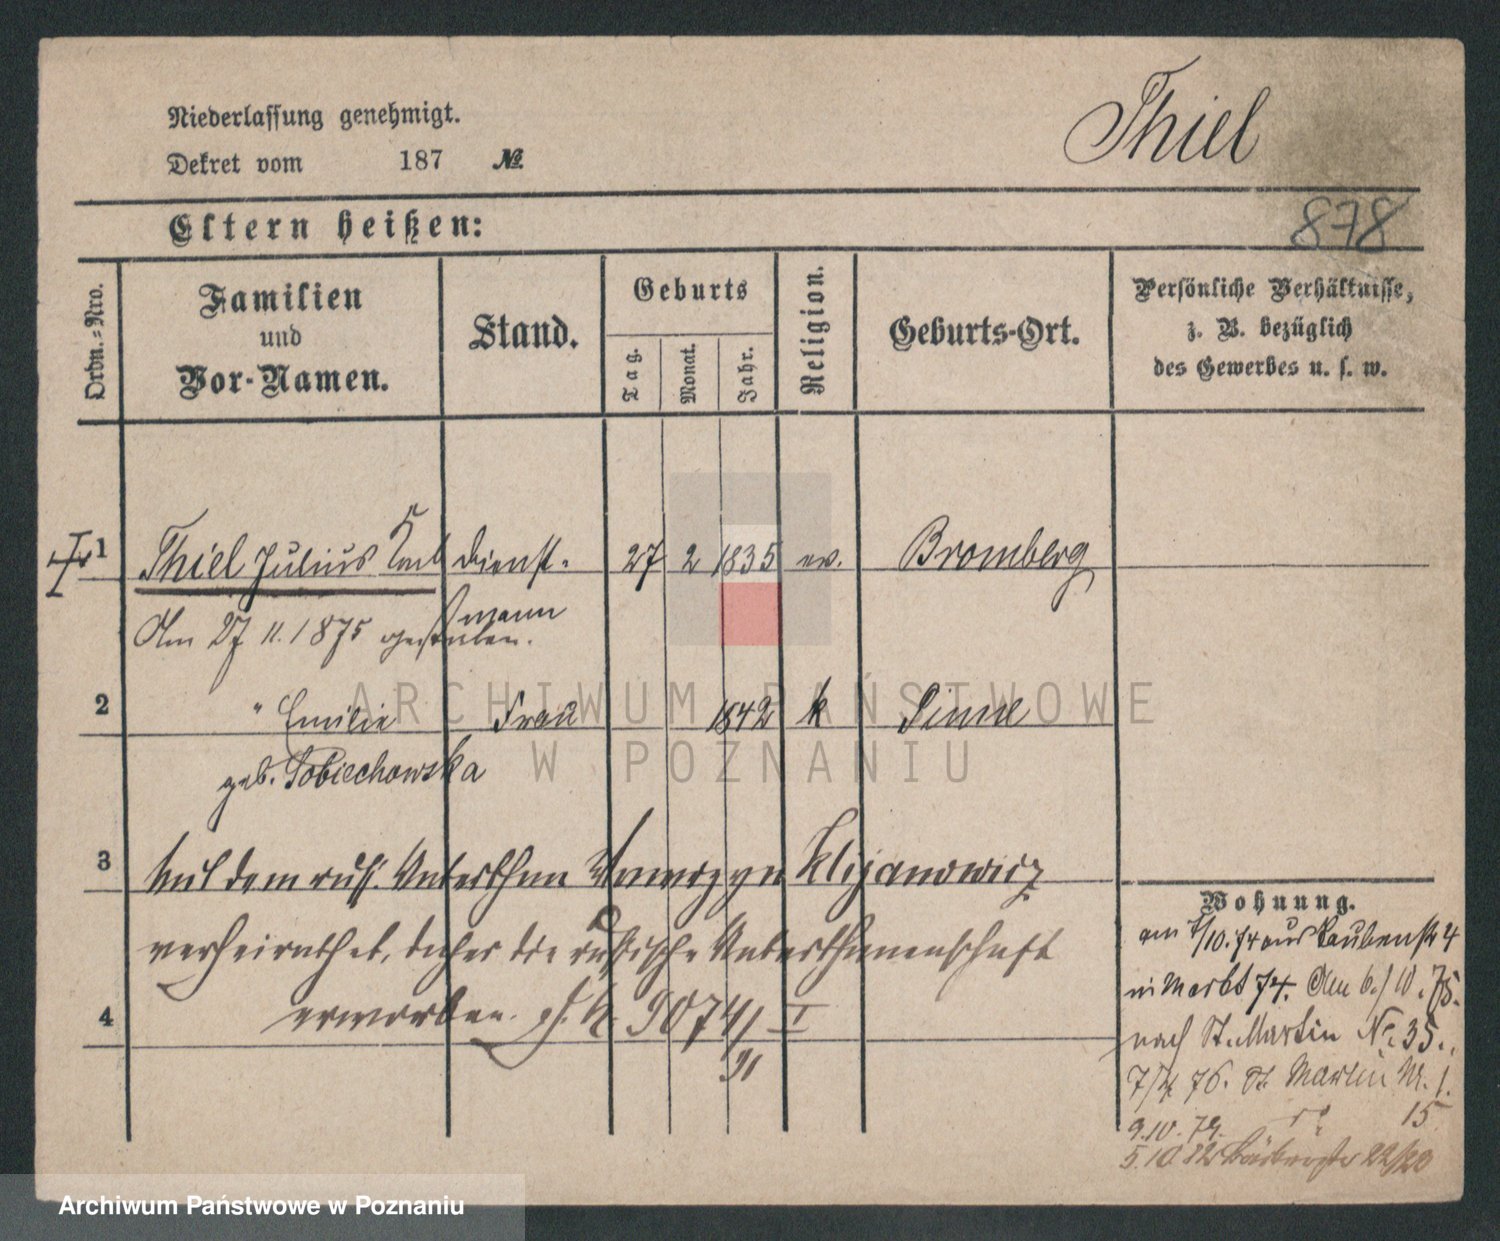 Niederlassung genehmigt.
Thiel
Dekret vom 187 №
878
Eltern heißen:
Ordn.=Nro.
Familien und Vor-Namen.
Stand.
Geburts
Tag.
Monat.
Jahr.
Religion.
Geburts-Ort.
Persönliche Verhältnisse,
z. B. bezüglich
des Gewerbes u. s. w.
1 Thiel Julius Karl Dienst- 27 2 1835 ev. Bromberg
mann
Am 27 11. 1875 gestorben.
2 " Emilie Frau 1842 k Pinne
geb. Sobiechowska
3 Mit dem russ. Unterthan Klijanowicz
verheirathet, daher die russische Unterthanenschaft
4 erworben. 9074/I
91
Wohnung.
am 7/10. 74 aus Taubenstr 4
in Markt 74. Am 6./10. 75.
nach St. Martin No. 35.
7/4 76. St. Martin Nr. 1.
9.10.79. do 15
5.10.82 Bäckerstr 22/23
ARCHIWUM PAŃSTWOWE
W POZNANIU
Archiwum Państwowe w Poznaniu